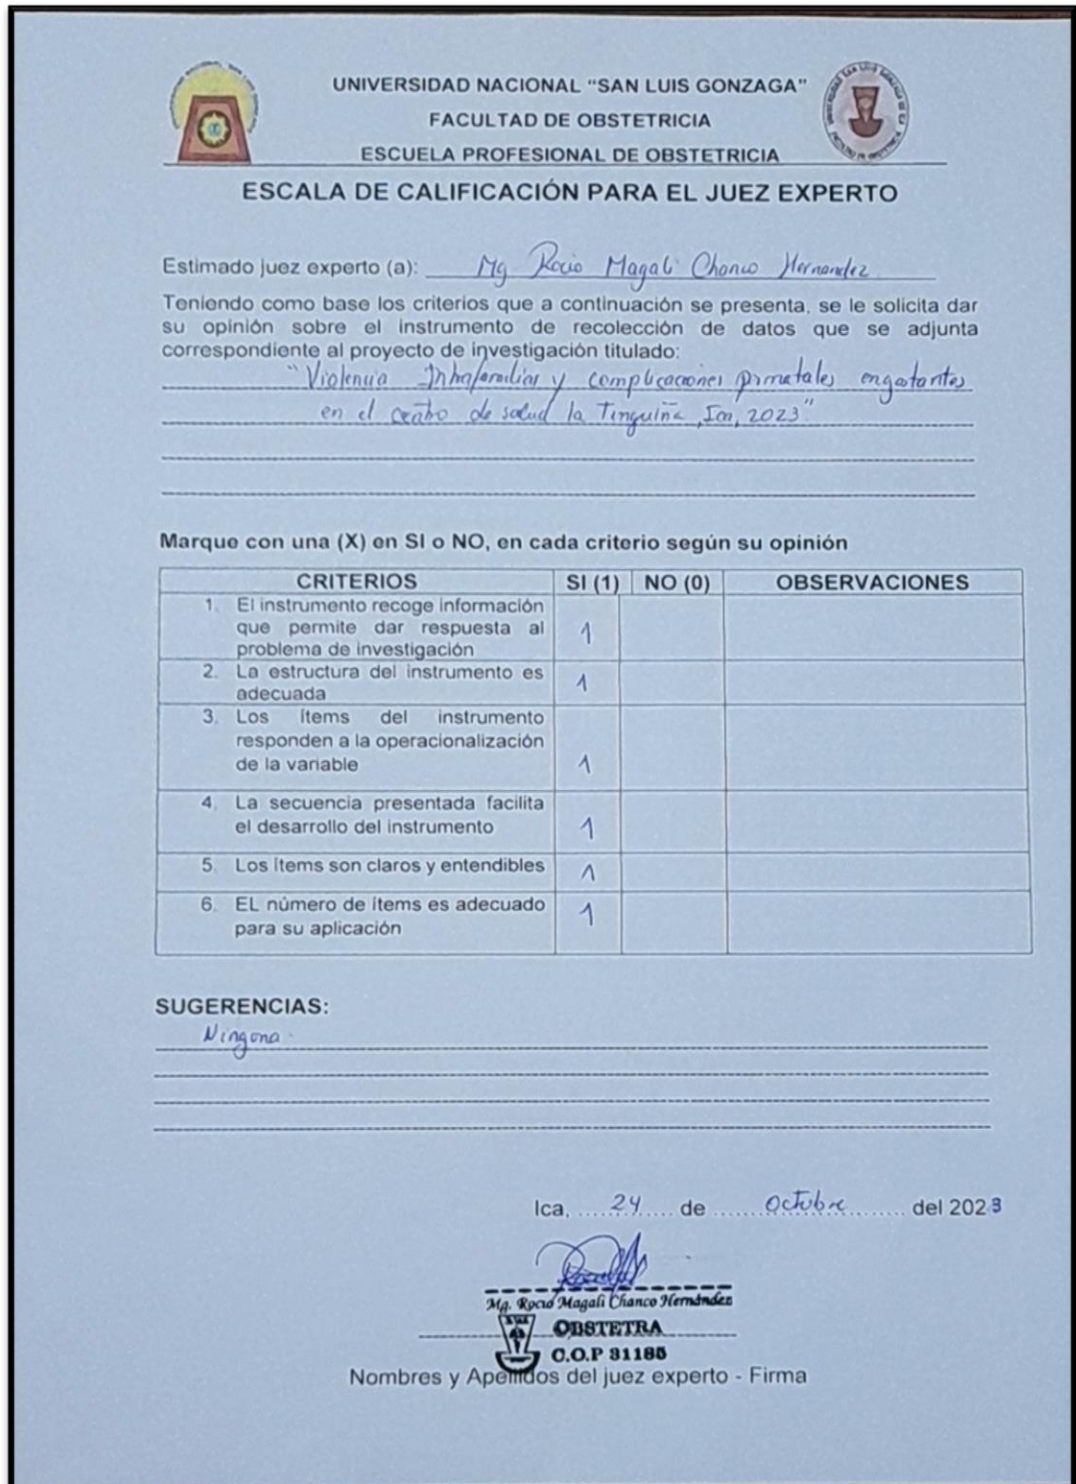 UNIVERSIDAD NACIONAL “SAN LUIS GONZAGA”
FACULTAD DE OBSTETRICIA
ESCUELA PROFESIONAL DE OBSTETRICIA
ESCALA DE CALIFICACIÓN PARA EL JUEZ EXPERTO
Estimado juez experto (a): Mg Rocio Magali Chanco Hernandez
Teniendo como base los criterios que a continuación se presenta, se le solicita dar
su opinión sobre el instrumento de recolección de datos que se adjunta
correspondiente al proyecto de investigación titulado:
"Violencia Intrafamiliar y complicaciones en gestantes
en el centro de salud la Tinguiña, Ica, 2023"
Marque con una (X) en SI o NO, en cada criterio según su opinión
CRITERIOS SI (1) NO (0) OBSERVACIONES
1. El instrumento recoge información
que permite dar respuesta al
problema de investigación 1
2. La estructura del instrumento es
adecuada 1
3. Los ítems del instrumento
responden a la operacionalización
de la variable 1
4. La secuencia presentada facilita
el desarrollo del instrumento 1
5. Los ítems son claros y entendibles 1
6. EL número de ítems es adecuado
para su aplicación 1
SUGERENCIAS:
Ningona.
Ica, 24 de Octubre del 2023
Mg. Rocio Magali Chanco Hernández
OBSTETRA
C.O.P 31185
Nombres y Apellidos del juez experto - Firma